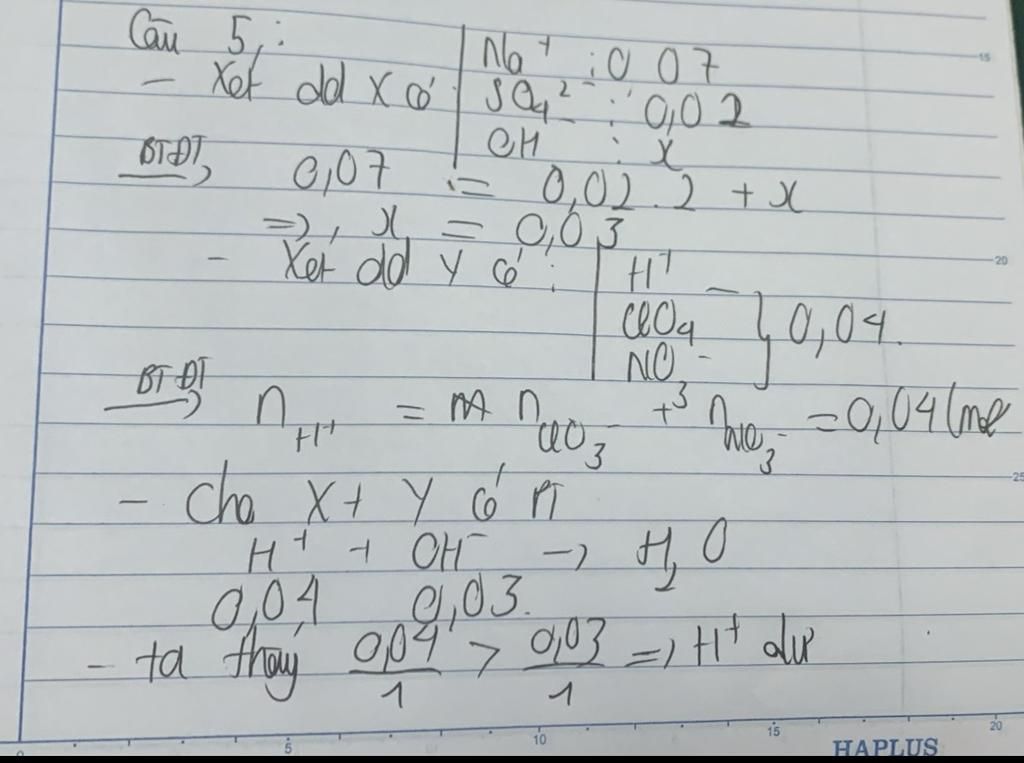 Câu 5, :
- Xét dd X có | Na⁺ : 0 07
SO₄²⁻ : 0,02
OH⁻ : x
BTĐT→ 0,07 = 0,02.2 + x
=>, x = 0,03
- Xét dd Y có : | H⁺
ClO₄⁻
NO₃⁻ } 0,04.
BTĐT→ n H⁺ = n ClO₃⁻ + n NO₃⁻ = 0,04 (mol
- Cho X + Y có PT
H⁺ + OH⁻ → H₂O
0,04 0,03.
- ta thấy 0,04/1 > 0,03/1 => H⁺ dư
15
20
25
5 10 15 20
HAPLUS